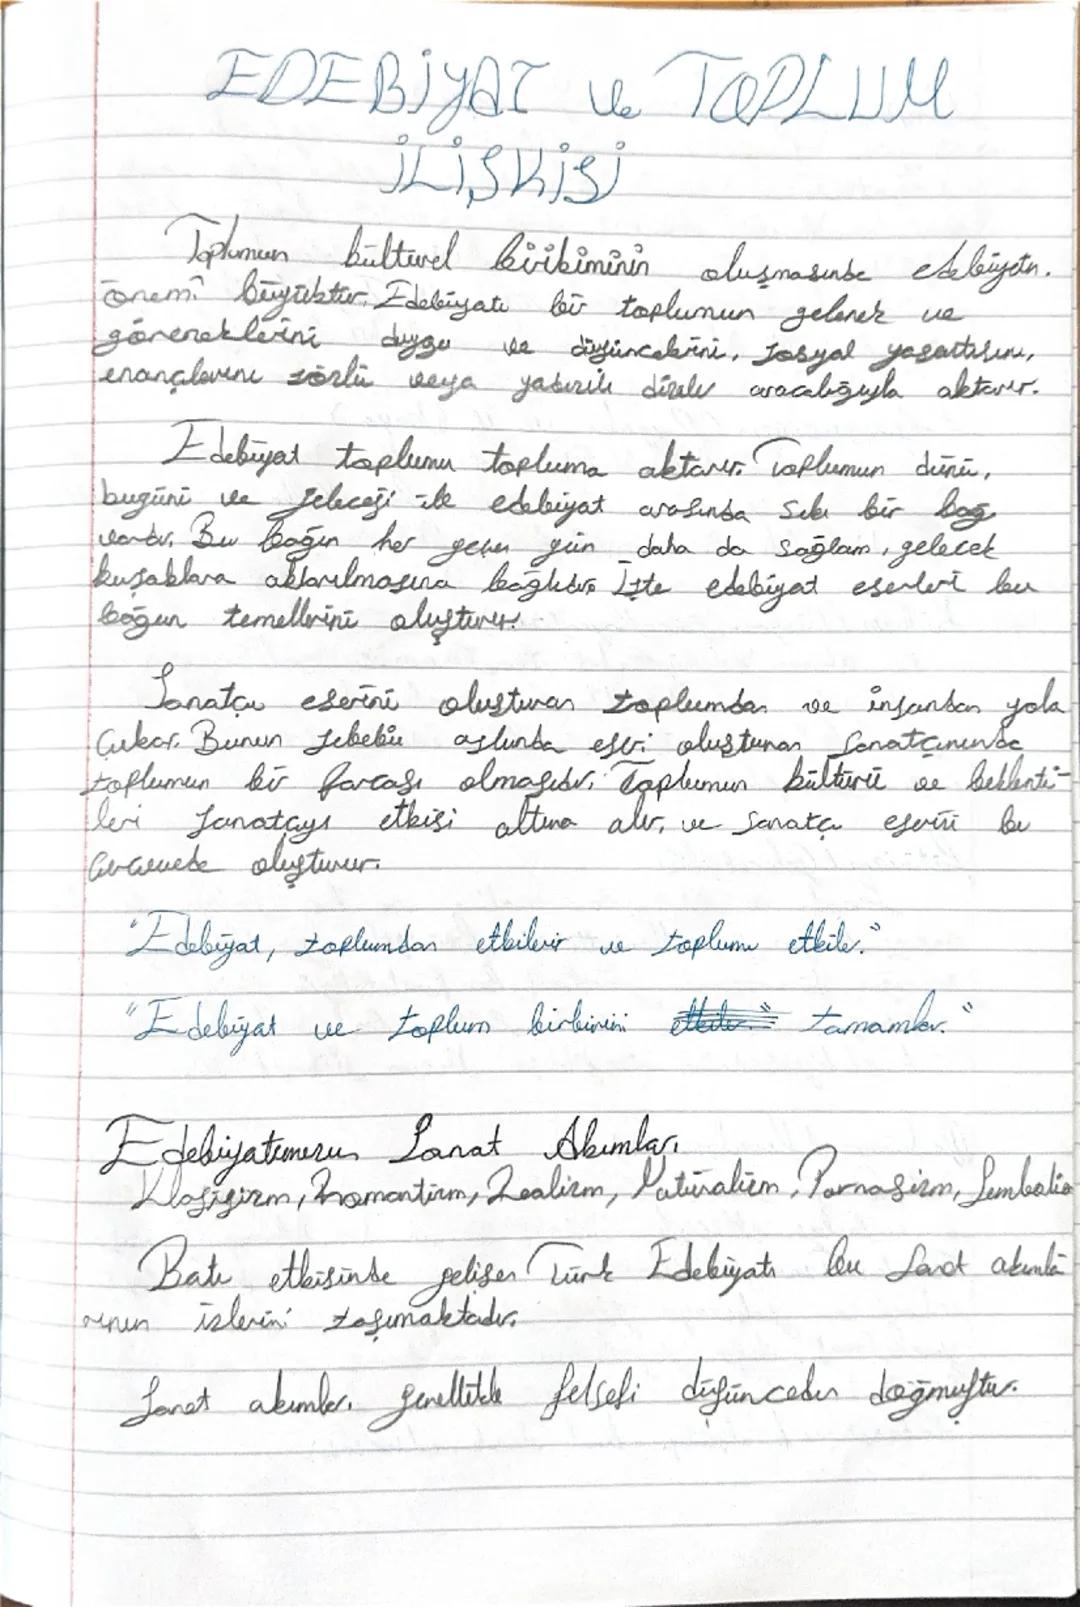 EDEBİYAT ve TOPLUM
İLİŞKİSİ
Toplumun kültürel birikiminin oluşmasında edebiyatın
önemi büyüktür. Edebiyatı bir toplumun gelenek ve
göreneklerini duygu ve düşüncelerini, sosyal yaşantısını,
inançlarını sözlü veya yazılı dizeler aracılığıyla aktarır.
Edebiyat toplumu topluma aktarır. Toplumun dünü,
bugünü ve geleceği ile edebiyat arasında sıkı bir bağ
vardır. Bu bağın her geçen gün daha da sağlam, gelecek
kuşaklara aktarılmasına bağlıdır. İşte edebiyat eserleri bu
bağın temellerini oluşturur.
Sanatçı eserini oluşturan toplumdan ve insandan yola
çıkar. Bunun sebebi aslında eseri oluşturan sanatçınında
toplumun bir parçası olmasıdır. Toplumun kültürü ve beklenti-
leri sanatçıyı etkisi altına alır, ve sanatçı eserini bu
çerçevede oluşturur.
"Edebiyat, toplumdan etkilenir ve toplumu etkiler."
"Edebiyat ve toplum birbirini etkiler." tamamlar."
Edebiyatımızın Sanat Akımları
Klasisizm, Romantizm, Realizm, Natüralizm, Parnasizm, Sembolizm
Batı etkisinde gelişen Türk Edebiyatı bu sanat akımla
rının izlerini taşımaktadır.
Sanat akımları genellikle felsefi düşünceden doğmuştur.